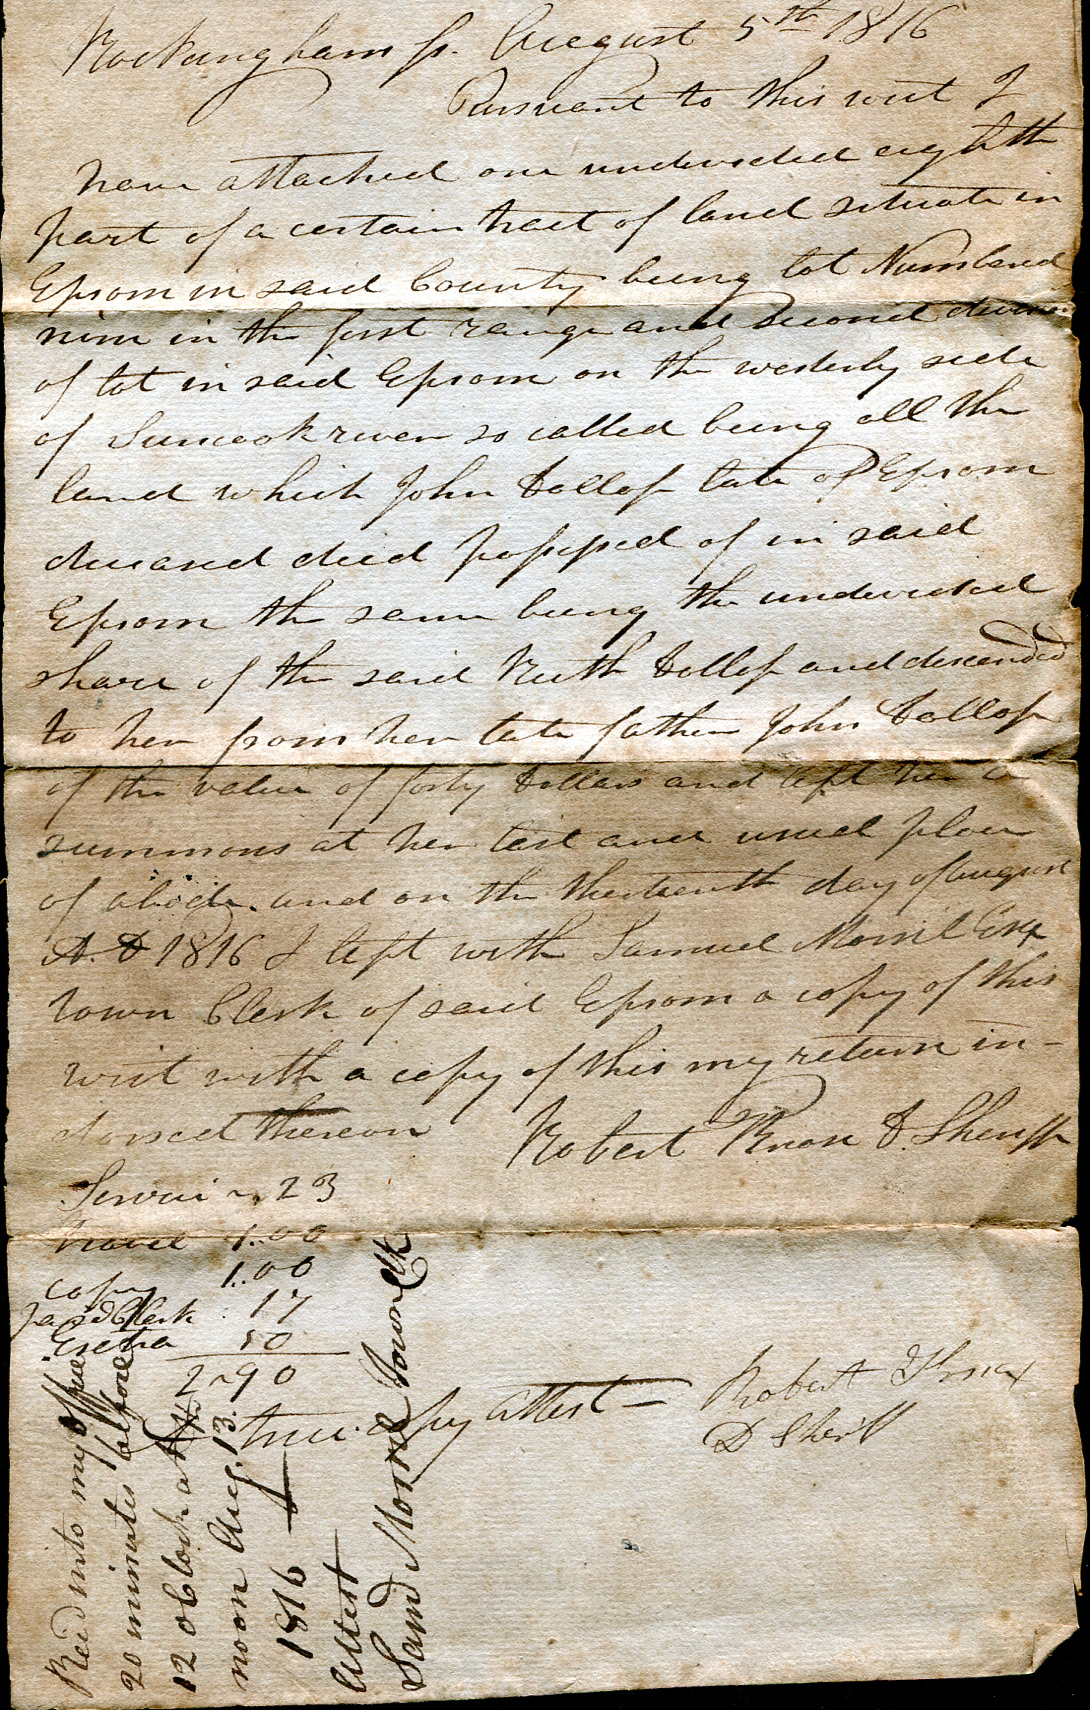 Rockingham ss. August 5th 1816
Pursuant to this writ I
have attached one undivided eighth
part of a certain tract of land situate in
Epsom in said County being lot Numbered
nine in the first range and second division
of lot in said Epsom on the westerly side
of Suncook river so called being all the
land which John Dollof late of Epsom
deceased died possessed of in said
Epsom the same being the undivided
share of the said Ruth Dollof and descended
to her from her late father John Dollof
of the value of forty Dollars and left her a
summons at her last and usual place
of abode. and on the thirteenth day of august
A. D 1816 I left with Samuel Morril Esq
town Clerk of said Epsom a copy of this
writ with a copy of this my return in-
dorsed thereon Robert D. Sheriff
Servic 23
travel 1.00
copy 1.00
paid Clerk 17
Extra 50
2 90
A true copy attest — Robert
D Sheriff
Recd into my office
20 minutes before
12 oClock at
noon Aug. 13.
1816
Attest
Saml Morril Town Clk